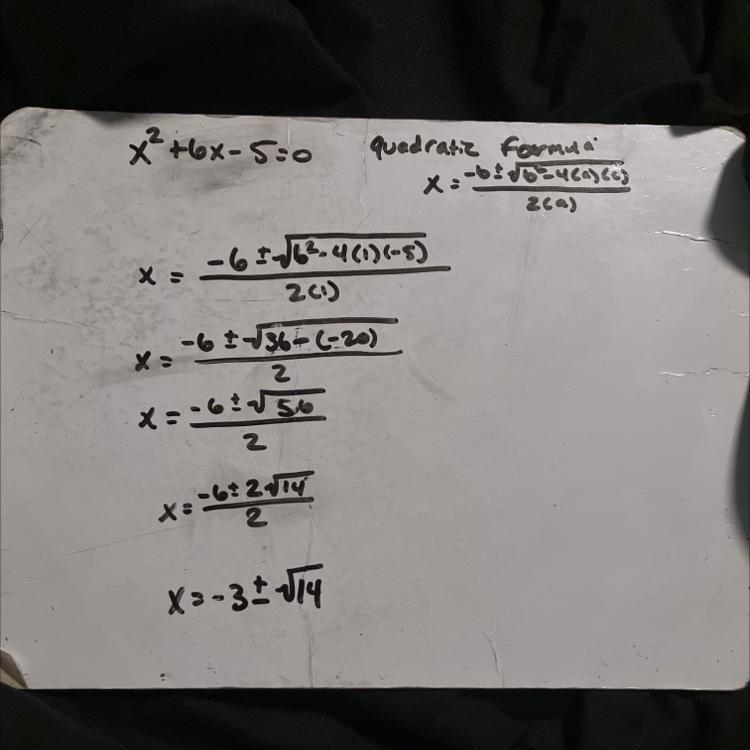 x² + 6x - 5 = 0
quadratic formula
x = (-b ± √(b² - 4(a)(c))) / 2(a)
x = (-6 ± √(6² - 4(1)(-5))) / 2(1)
x = (-6 ± √(36 - (-20))) / 2
x = (-6 ± √56) / 2
x = (-6 ± 2√14) / 2
x = -3 ± √14